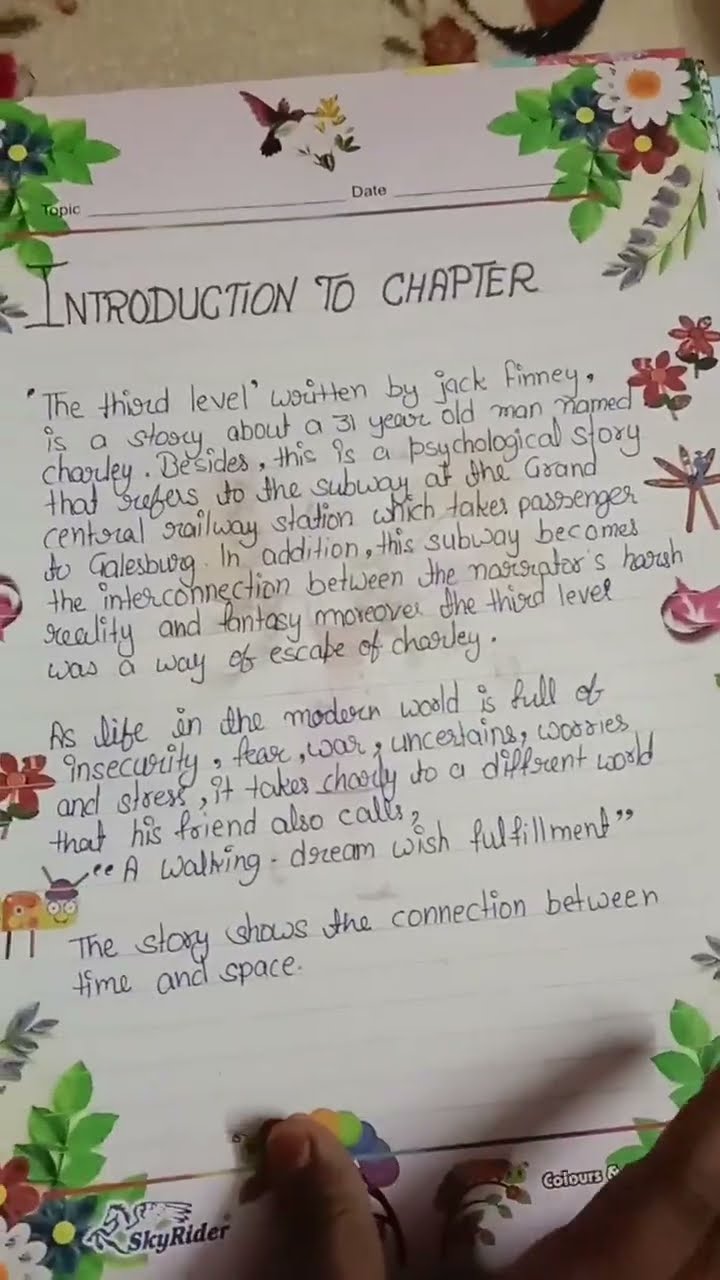 Topic
Date
INTRODUCTION TO CHAPTER
'The third level' written by jack finney,
is a story about a 31 year old man named
charley. Besides, this is a psychological story
that refers to the subway at the Grand
central railway station which takes passenger
to Galesburg. In addition, this subway becomes
the interconnection between the narrator's harsh
reality and fantasy moreover the third level
was a way of escape of charley.
As life in the modern world is full of
insecurity, fear, war, uncertains, worries
and stress, it takes charly to a different world
that his friend also calls,
"A walking-dream wish fulfillment"
The story shows the connection between
time and space.
SkyRider
Colours &